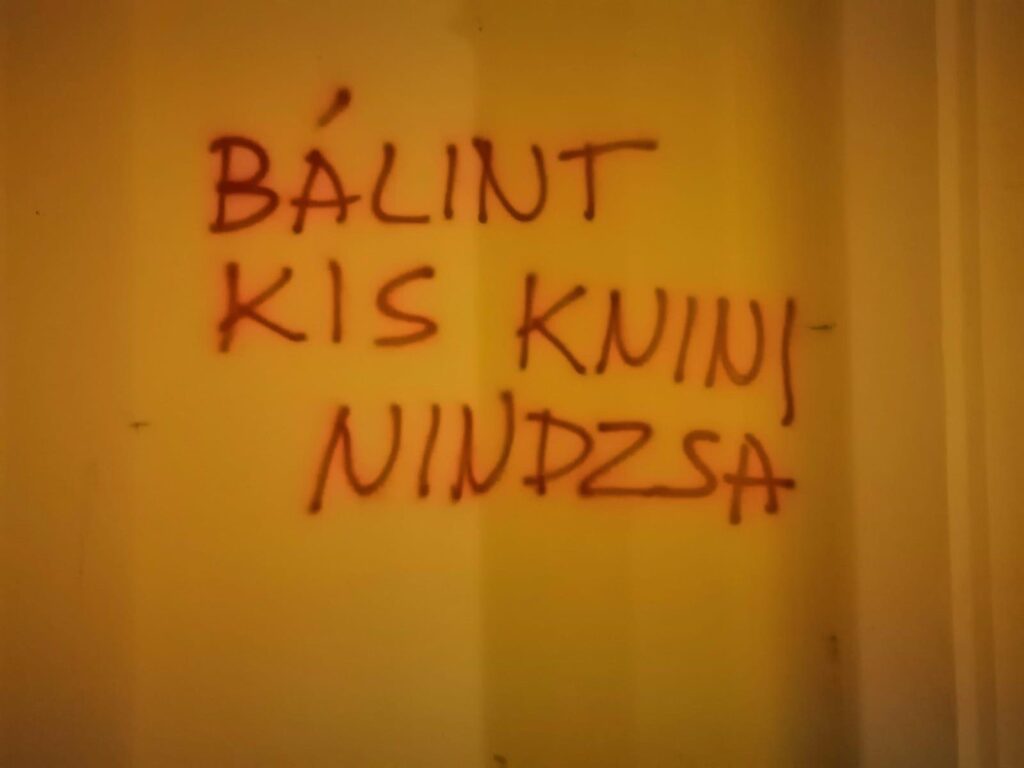 BÁLINT
KIS KNINI
NINDZSA